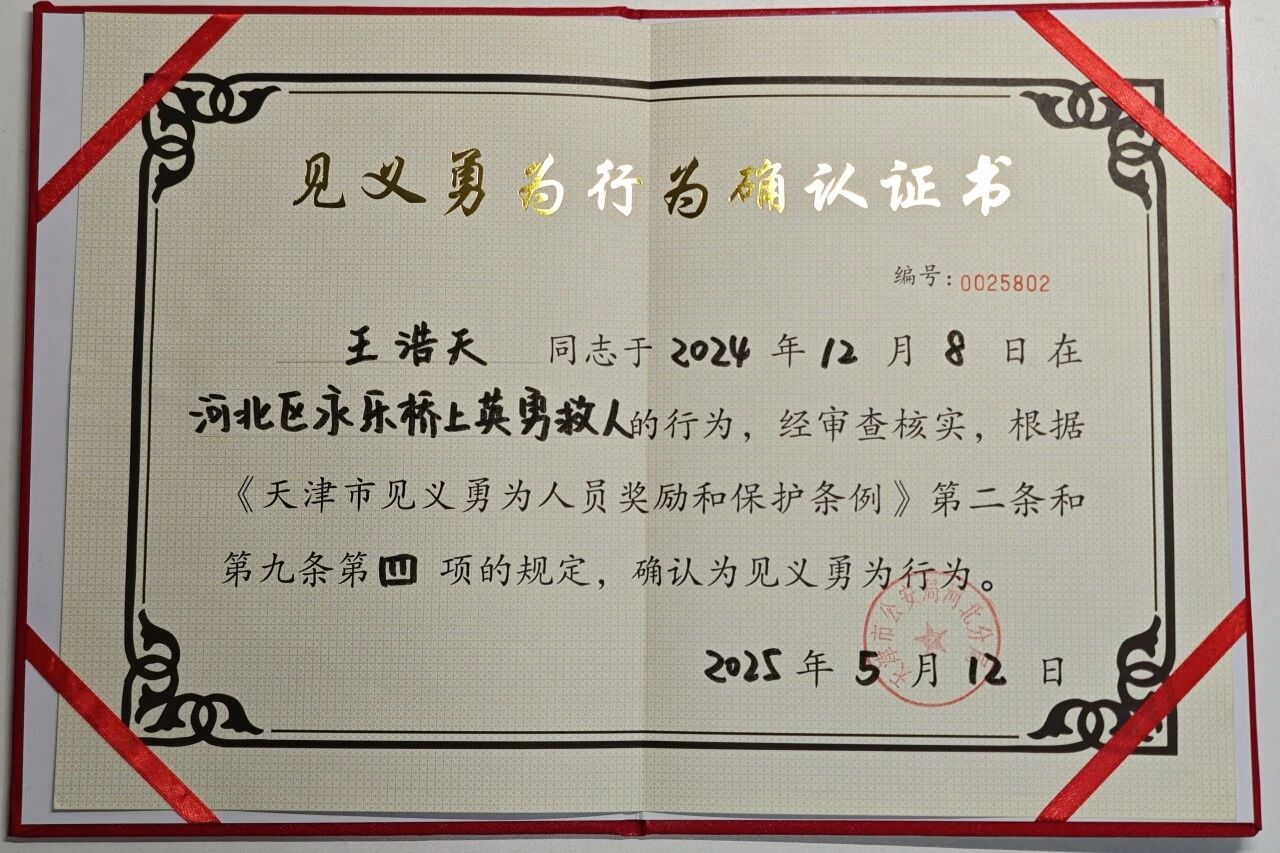 见义勇为行为确认证书
编号：0025802
王浩天 同志于 2024 年 12 月 8 日在
河北区永乐桥上英勇救人的行为，经审查核实，根据
《天津市见义勇为人员奖励和保护条例》第二条和
第九条第四项的规定，确认为见义勇为行为。
天津市公安局河北分局
2025 年 5 月 12 日